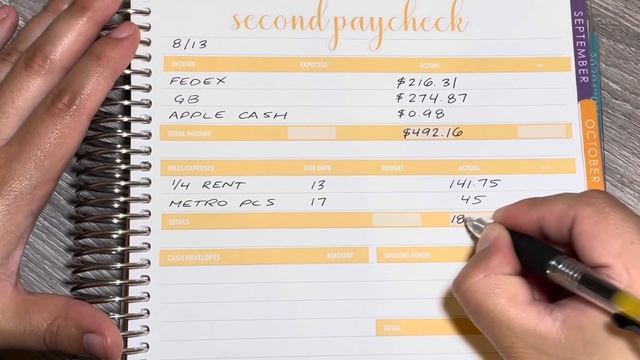 second paycheck
8/13
INCOME EXPECTED ACTUAL +/-
FEDEX $216.31
GB $274.87
APPLE CASH $0.98
TOTAL INCOME $492.16
BILLS/EXPENSES DUE DATE BUDGET ACTUAL +/-
1/4 RENT 13 141.75
METRO PCS 17 45
TOTALS 18
CASH ENVELOPES AMOUNT SINKING FUNDS
TOTAL
SEPTEMBER
OCTOBER